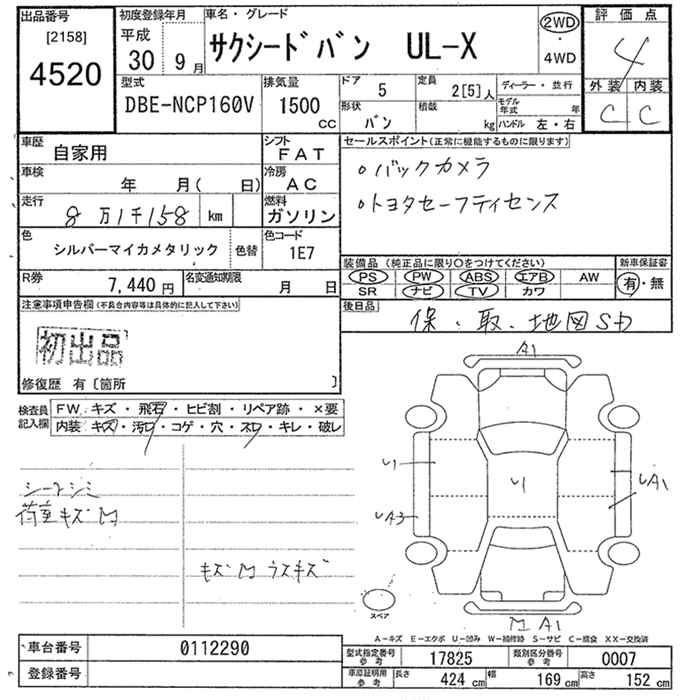 出品番号
[2158]
4520
初度登録年月
平成
30年9月
車名・グレード
サクシードバン UL-X
2WD
・
4WD
評価点
4
外装 内装
C C
型式
DBE-NCP160V
排気量
1500
CC
ドア
5
定員
2[5]人
形状
バン
積載
kg
ディーラー・並行
モデル年式 年
ハンドル 左・右
車歴
自家用
シフト
FAT
車検
年 月( 日)
冷房
AC
走行
8万1千158 km
燃料
ガソリン
色
シルバーマイカメタリック
色替
色コード
1E7
R券
7,440円
名変通知期限
月 日
セールスポイント(正常に機能するものに限ります)
○バックカメラ
○トヨタセーフティセンス
装備品(純正品に限り○をつけてください)
PS PW ABS エアB AW
SR ナビ TV カワ
新車保証書
有・無
後日品
保・取・地図SD
注意事項申告欄(不具合内容等は具体的に記入して下さい)
初出品
修復歴 有〔箇所 〕
検査員
記入欄
FW.キズ・飛石・ヒビ割・リペア跡・×要
内装・キズ・汚レ・コゲ・穴・スレ・キレ・破レ
シートシミ
荷室キズ凹
キズ凹 ラスキズ
A1
U1
U1
UA1
UA3
凹 A1
スペア
A-キズ E-エクボ U-凹み W-補修跡 S-サビ C-腐食 XX-交換済
車台番号
0112290
登録番号
型式指定番号
参考
17825
類別区分番号
参考
0007
車庫証明用
参考
長さ
424 cm
幅
169 cm
高さ
152 cm